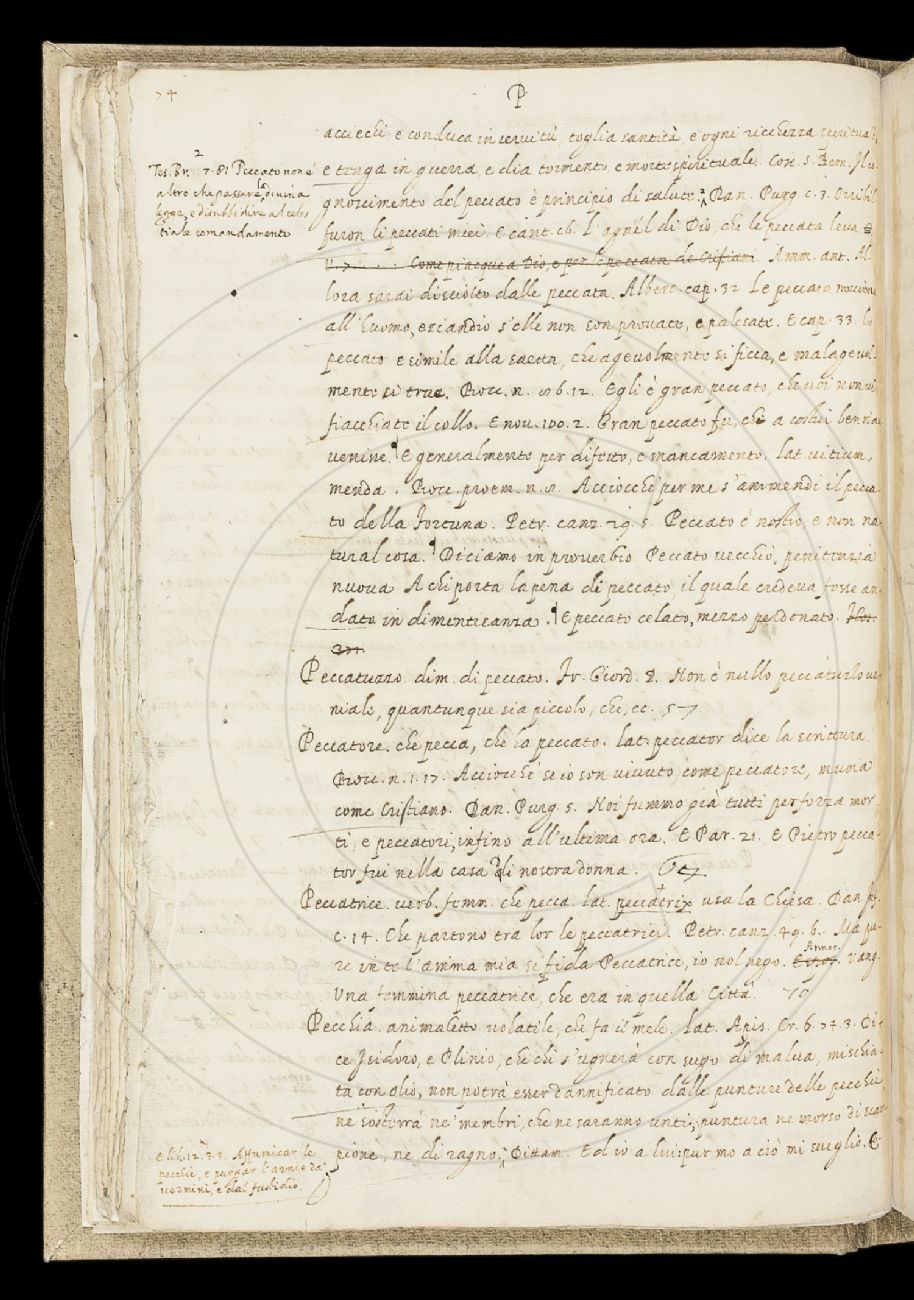 74
P
acciechi e conduca in servitù, toglia santità, e ogni ricchezza spiritual,
e tenga in guerra, e dia tormento, e morte spirituale. Com. 5. Bern. Il co
gnoscimento del peccato è principio di salute. Dan. Purg. c. 3. Orribil
furon li peccati miei. E cant. 16. L'agnel di Dio, che le peccata leva.
Come piacque a Dio, e per le peccata de Cristiani Amm. ant. Al-
lora sarai disciolto dalle peccata. Albert. cap. 32 Le peccata nocciono
all'huomo, eziandio s'elle non son provate, e palesate. E cap. 33. lo
peccato e simile alla saetta, che agevolmente si ficca, e malagevol-
mente si trae. Bocc. n. 6. 12. Egli è gran peccato, che voi non vi
fiacchiate il collo. E nov. 100. 2. Gran peccato fu, che a costui ben n'av-
venine. E generalmente per difetto, e mancamento. lat. vitium,
menda. Bocc. proem. n. 8. Acciocchè per me s'ammendi il pecca-
to della Fortuna. Petr. canz. 29. 5. Peccato è nostro, e non na-
tural cosa. Diciamo in proverbio Peccato vecchio, penitenzia
nuova A chi porta la pena di peccato, il quale credeva fosse an-
dato in dimenticanza. E peccato celato, mezzo perdonato.
Peccatuzzo dim. di peccato. Fr. Giord. 8. Non è nullo peccatuzlo ve-
niale, quantunque sia piccolo, che, ec. 57
Peccatore. che pecca, che ha peccato. lat. peccator dice la scrittura.
Bocc. n. 1. 17. Acciocchè se io son vivuto, come peccatore, muoia
come Cristiano. Dan. Purg. 5. Noi fummo già tutti per forza mor-
ti, e peccatori, infino all'ultima ora. E Par. 21. E Pietro pecca-
tor fui nella casa di nostra donna.
Peccatrice. verb. femn. che pecca. lat. peccatrix usa la Chiesa. Dan Inf.
c. 14. Che partono tra lor le peccatrici. Petr. canz. 49. 6. Ma pu-
re in te l'anima mia si fida Peccatrice, io nol nego. Annot. Vang.
Una femmina peccatrice, che era in quella Città. 70
Pecchia. animaletto volatile, che fa il mele. Lat. Apis. Cr. 6. 74. 3. Di-
ce Isidoro, e Plinio, che chi s'ugnerà con sugo di malva, mischia-
ta con olio, non potrà esser dannificato dalle punture delle pecchie,
nè sosterrà ne' membri, che ne saranno unti, puntura ne morso di scor-
pione, ne di ragno. Dittam. Ed io a lui: pur mo a ciò mi sveglio. E
Tes. Br. 2 7. 81 Peccato non è
altro che passare la divina
legge, e disubbidire al celes
tiale comandamento
E lib. 12. 3. 3. Affumicar le
pecchie, e purgar l'arnie da'
vermini, e dal fastidio.